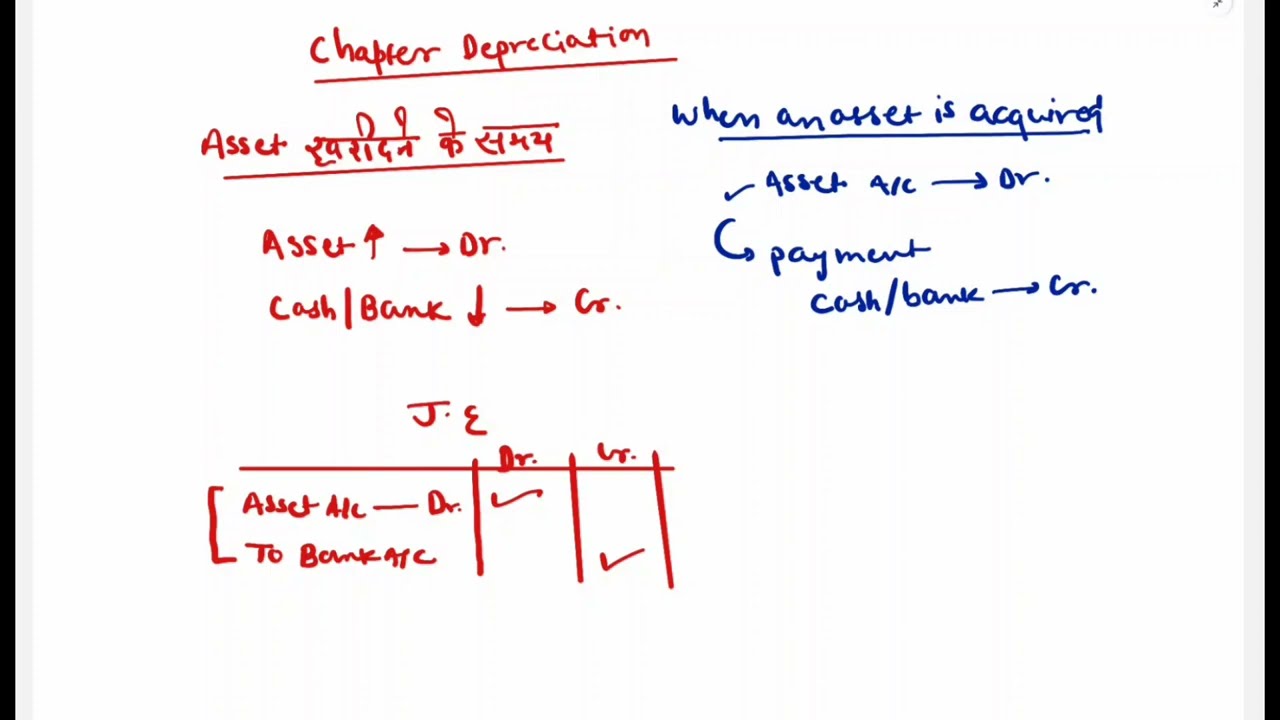 Chapter Depreciation
Asset खरीदने के समय
Asset ↑ → Dr.
Cash/Bank ↓ → Cr.
When an asset is acquired
✓ Asset A/c → Dr.
↳ payment
cash/bank → Cr.
J. E
Dr. Cr.
Asset A/c — Dr. ✓
To Bank A/c ✓